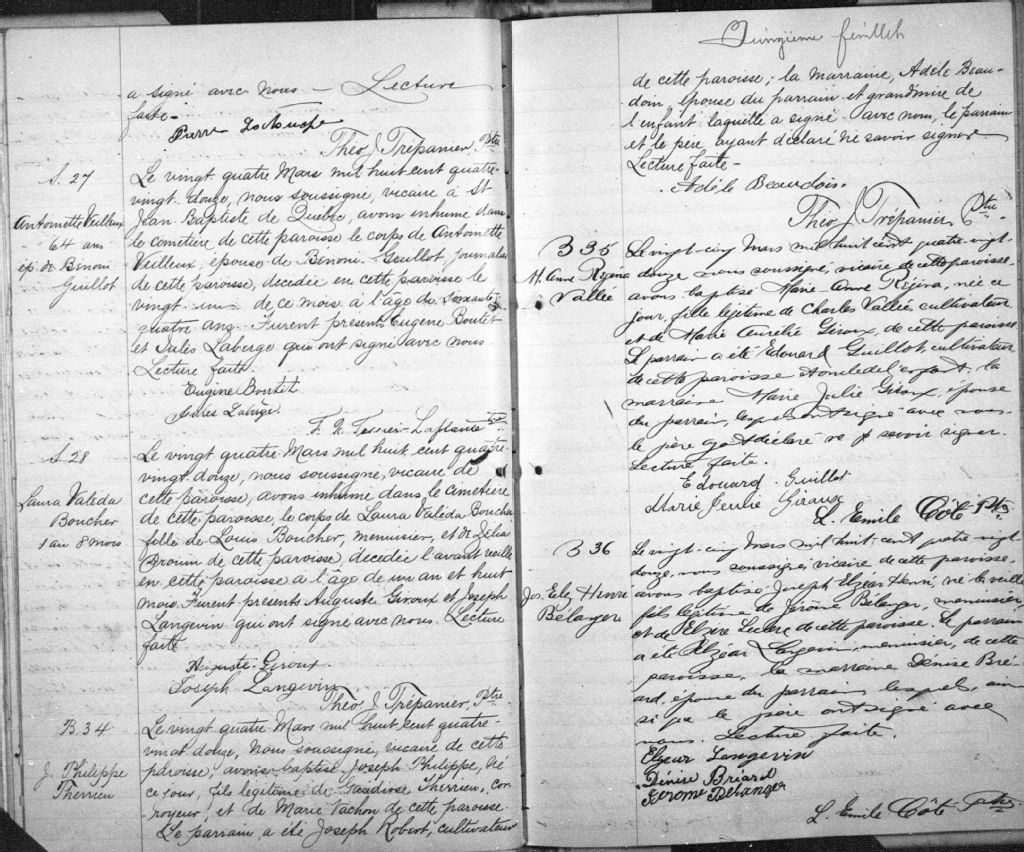 a signé avec nous — Lecture
faite —
Pierre Latouche
Théo J Trépanier, Ptre
S. 27
Antoinette Veilleux
64 ans
ép. de Bénoni
Guillot
Le vingt quatre Mars mil huit cent quatre-
vingt-douze, nous soussigné, vicaire à St
Jean Baptiste de Québec, avons inhumé dans
le cimetière de cette paroisse le corps de Antoinette
Veilleux, épouse de Bénoni Guillot, journalier
de cette paroisse, décédée en cette paroisse le
vingt-un de ce mois à l'âge de soixante
quatre ans. Furent présents Eugène Boutet
et Jules Laberge qui ont signé avec nous
Lecture faite.
Eugène Boutet
Jules Laberge.
F. X. Tessier-Laplante Ptre
S. 28
Laura Valéda
Boucher
1 an 8 mois
Le vingt quatre Mars mil huit cent quatre-
vingt-douze, nous soussigné, vicaire de
cette paroisse, avons inhumé dans le cimetière
de cette paroisse, le corps de Laura Valéda Boucher
fille de Louis Boucher, menuisier, et de Zélia
Brown de cette paroisse décédée l'avant veille
en cette paroisse à l'âge de un an et huit
mois. Furent présents Auguste Giroux et Joseph
Langevin qui ont signé avec nous. Lecture
faite
Auguste Giroux.
Joseph Langevin
Théo J Trépanier, Ptre
B. 34
J. Philippe
Therrien
Le vingt quatre Mars mil huit cent quatre-
vingt douze, Nous soussigné, vicaire de cette
paroisse, avons baptisé Joseph Philippe, né
ce jour, fils légitime de Gaudiose Therrien, cor-
royeur, et de Marie Vachon de cette paroisse.
Le parrain a été Joseph Robert, cultivateur
Quinzième feuillet
de cette paroisse; la marraine, Adèle Beau-
doin, épouse du parrain et grand'mère de
l'enfant laquelle a signé avec nous, le parrain
et le père, ayant déclaré ne savoir signer
Lecture faite —
Adèle Beaudoin.
Théo J Trépanier, Ptre
B 35
M. Anne Régina
Vallée
Le vingt-cinq Mars mil huit cent quatre-vingt-
douze nous soussigné, vicaire de cette paroisse
avons baptisé Marie Anne Régina, née ce
jour, fille légitime de Charles Vallée, cultivateur
et de Marie Aurélie Giroux, de cette paroisse.
Le parrain a été Edouard Guillot, cultivateur
de cette paroisse et oncle de l'enfant, la
marraine Marie Julie Giroux, épouse
du parrain, lesquels ont signé avec nous
le père ayant déclaré ne savoir signer.
Lecture faite.
Edouard Guillot
Marie Julie Giroux
L. Emile Côté Ptre
B 36
Jos. Elz. Henri
Bélanger
Le vingt-cinq Mars mil huit cent quatre vingt
douze, nous soussigné, vicaire de cette paroisse
avons baptisé Joseph Elzéar Henri, né la veille
fils légitime de Jérôme Bélanger, menuisier
et de Elzire Leclerc de cette paroisse. Le parrain
a été Elzéar Langevin, menuisier, de cette
paroisse, la marraine Dénise Bri-
ard, épouse du parrain lesquels, ain-
si que le père ont signé avec
nous. Lecture faite.
Elzéar Langevin
Dénise Briard
Jérome Bélanger
L. Emile Côté Ptre